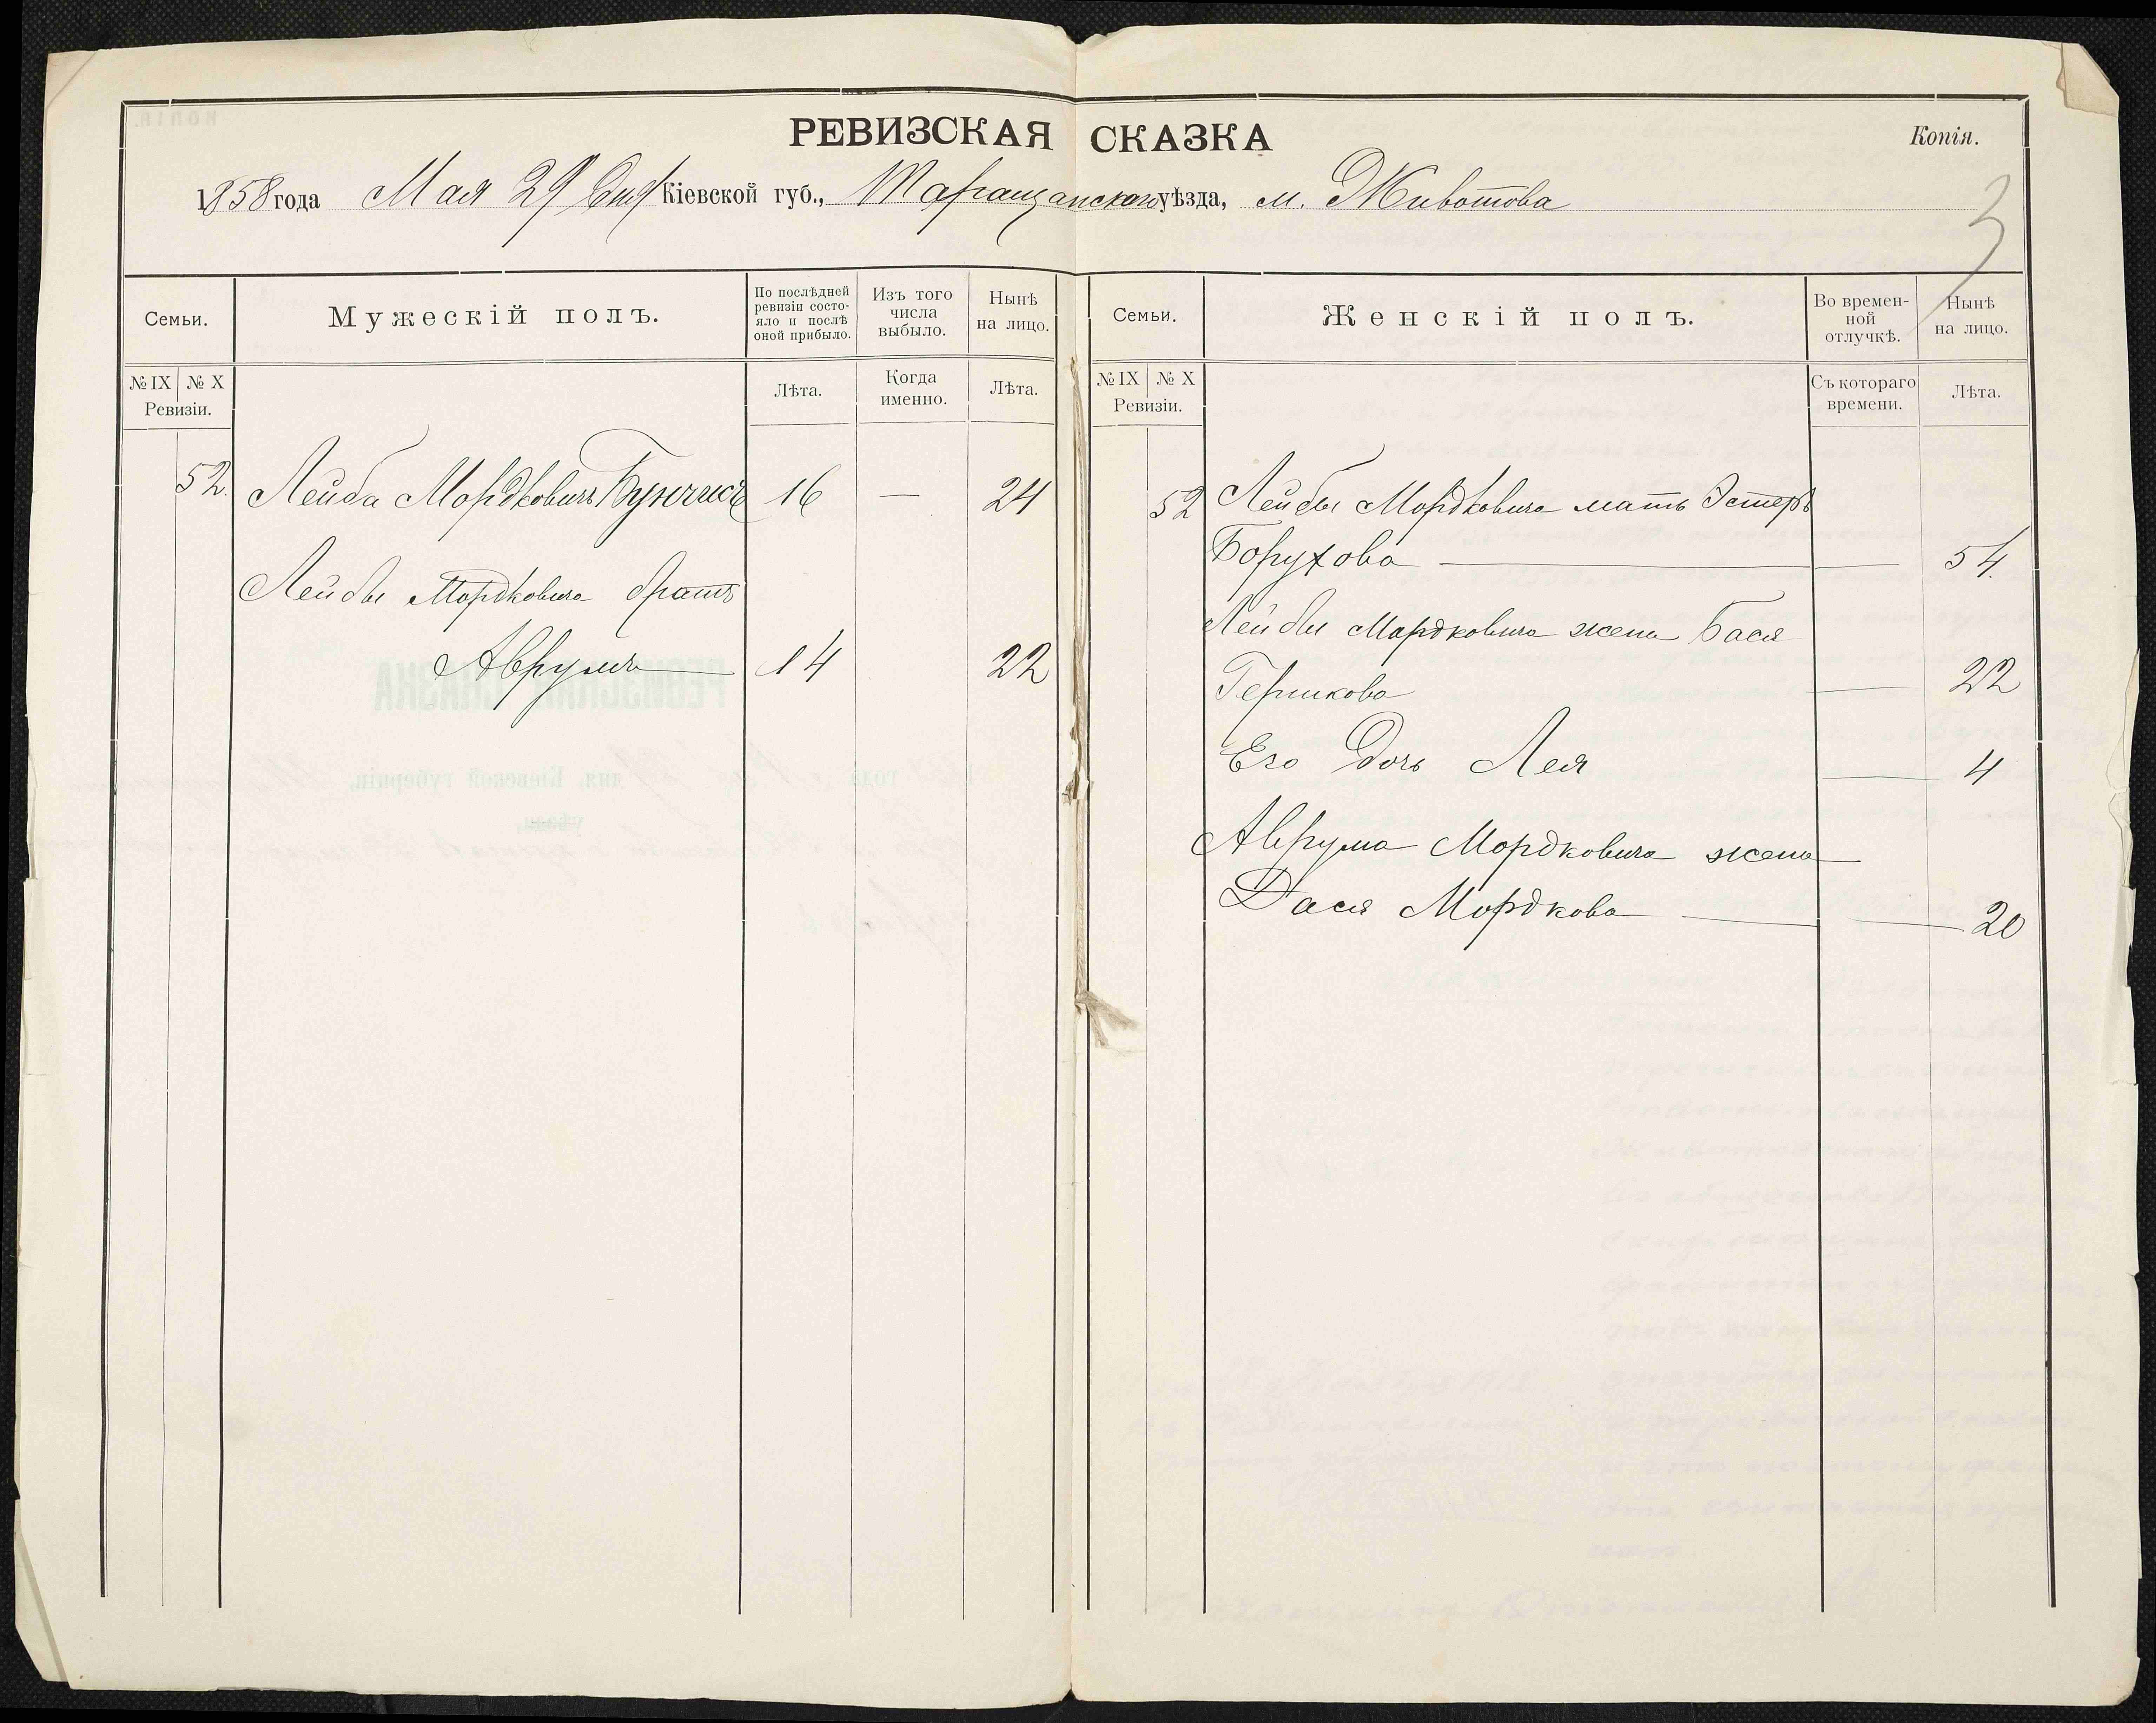 РЕВИЗСКАЯ СКАЗКА
Копія.
1858 года Мая 29 дня Кіевской губ., Таращанского уѣзда, м. Животова
3
Семьи.
Мужескій полъ.
По послѣдней
ревизіи состо-
яло и послѣ
оной прибыло.
Изъ того
числа
выбыло.
Нынѣ
на лицо.
№ IX № X
Ревизіи.
Лѣта.
Когда
именно.
Лѣта.
52. Лейба Мордковичъ 16 — 24
Лейбы Мордковича братъ
Аврумъ 14 22
Семьи.
Женскій полъ.
Во времен-
ной
отлучкѣ.
Нынѣ
на лицо.
№ IX № X
Ревизіи.
Съ котораго
времени.
Лѣта.
52 Лейбы Мордковича мать Эстеръ
Борухова — 54.
Лейбы Мордковича жена Бася
Гершкова — 22
Его дочь Лея — 4
Аврума Мордковича жена
Дася Мордкова — 20